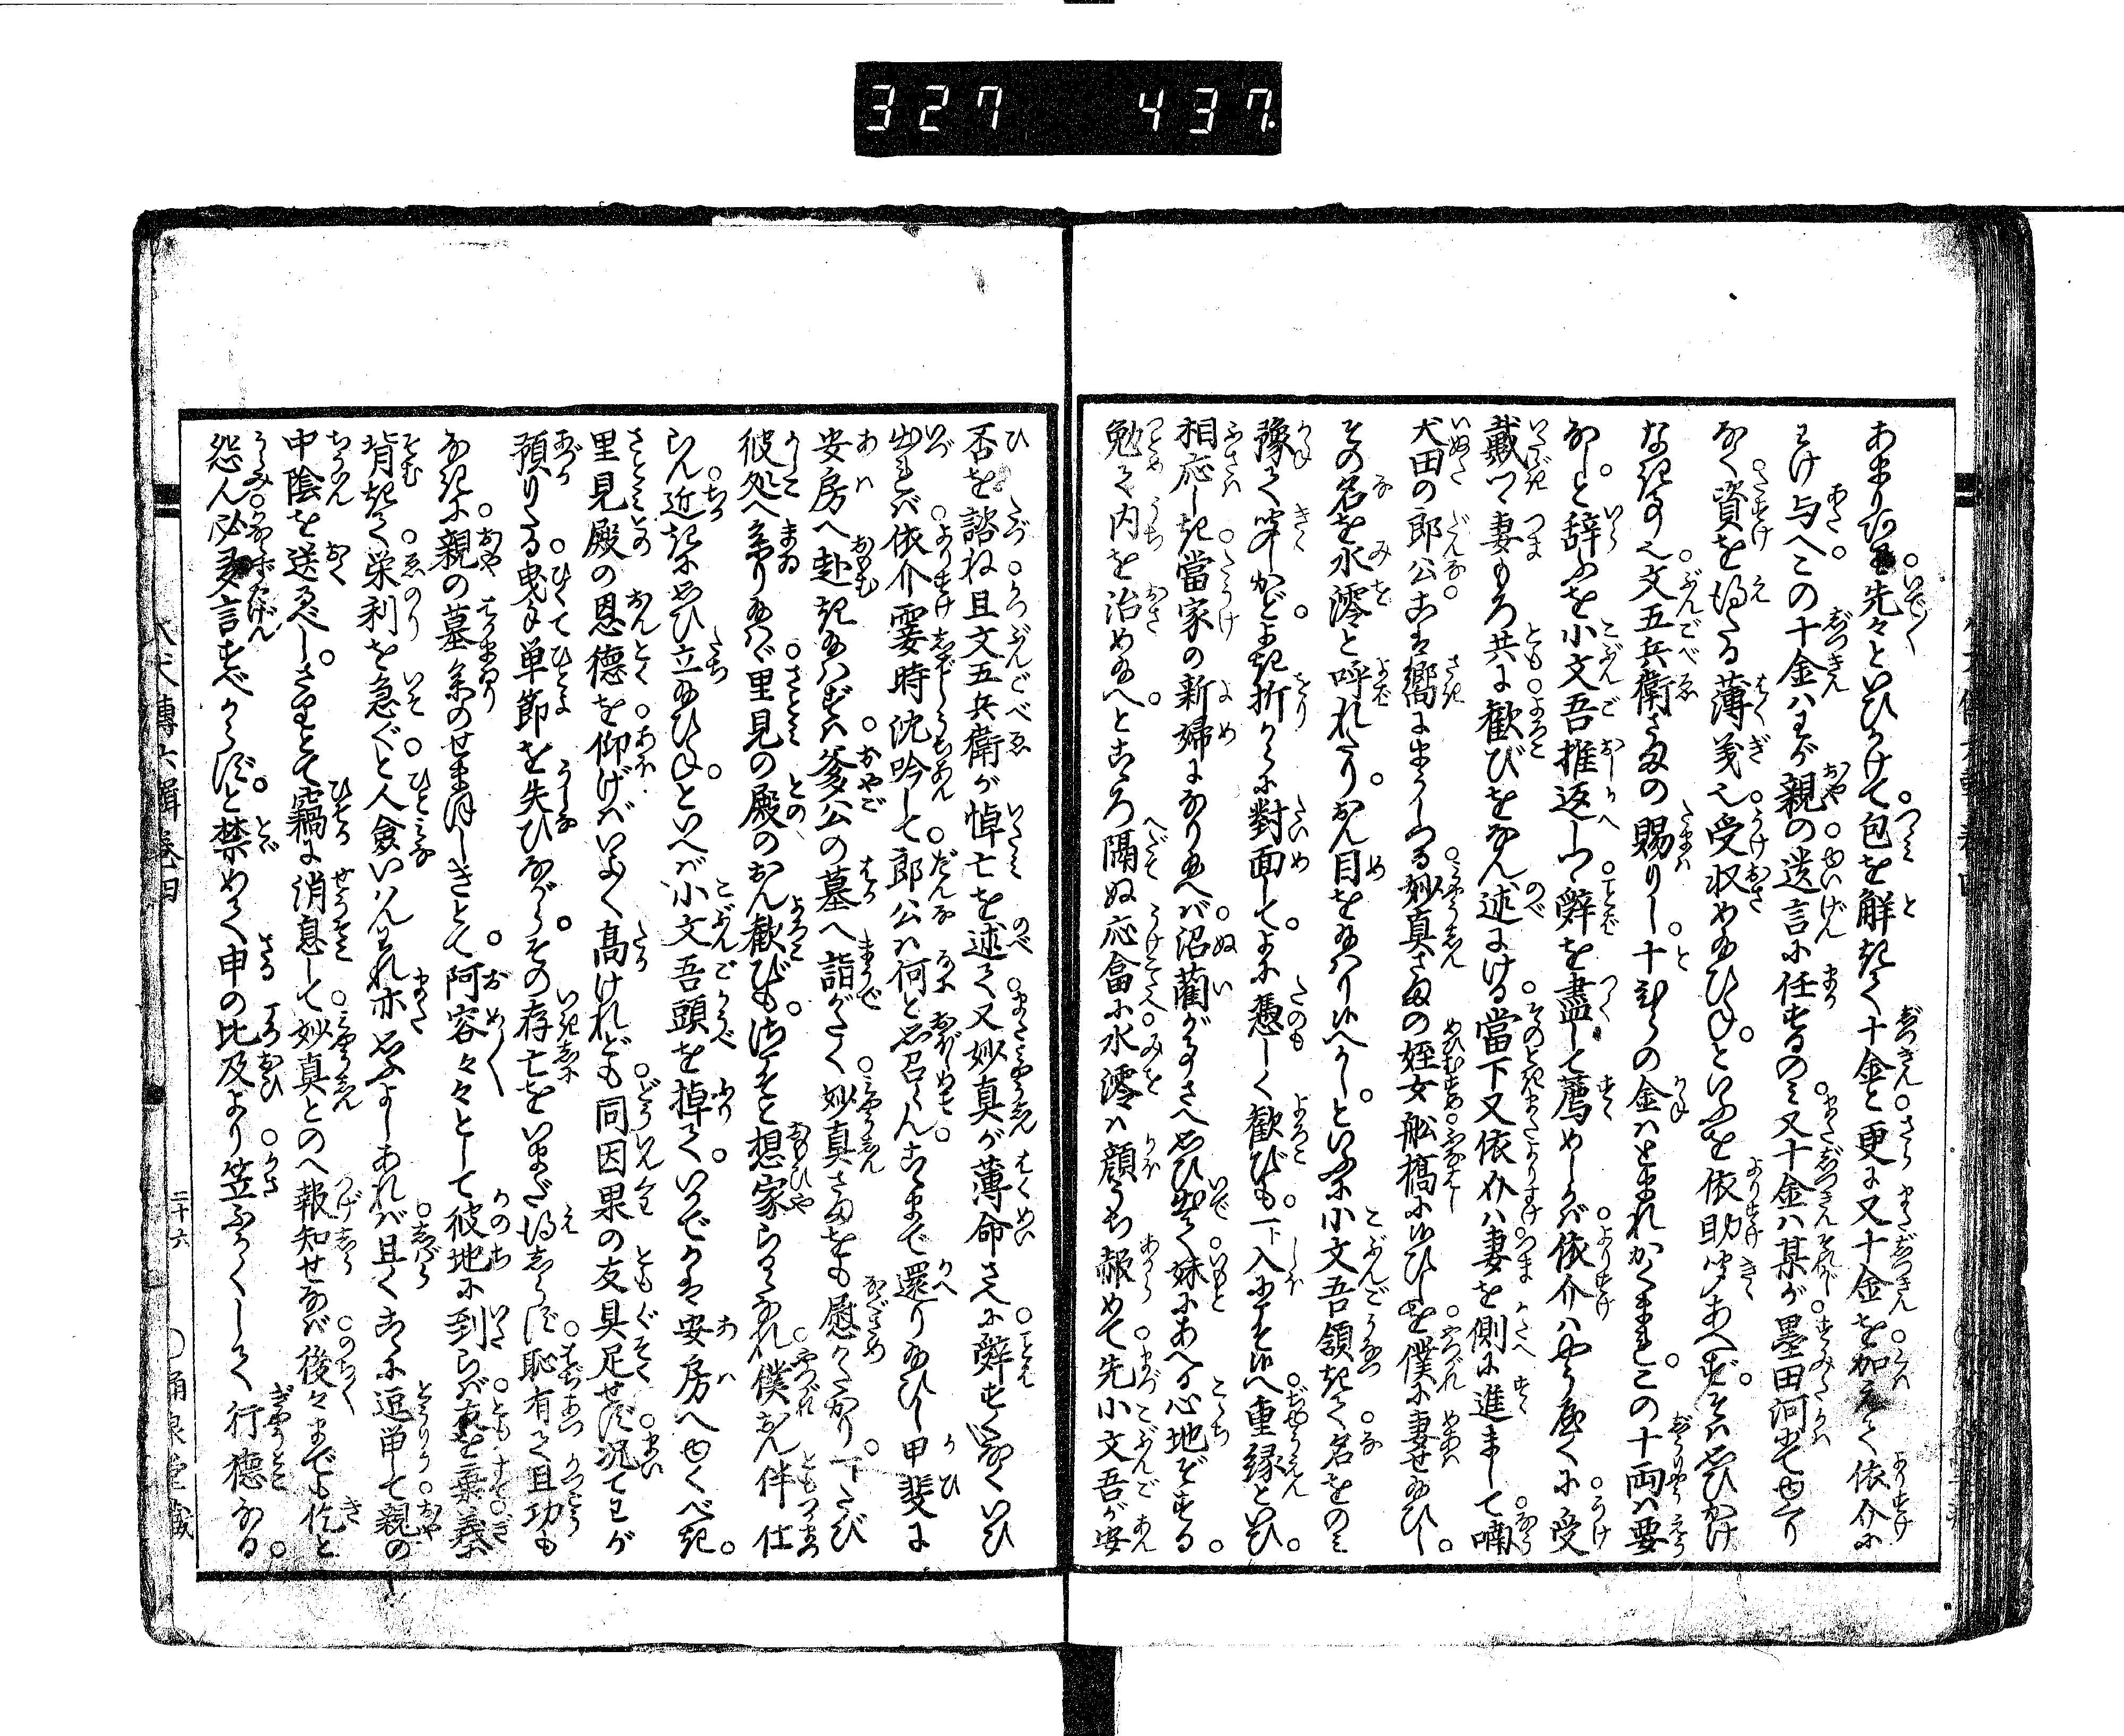 327 437
あまりぬ先々といひかけて包を解きて十金と更に又十金を加えて依介に
わけ与へこの十金ハわが親の遺言に任するのミ又十金ハ某が墨田河にて
なく資を得たる薄義也受収め給ひねといふを依助聞あへずそハ思ひかけ
なき事也文五兵衛さまの賜りし十むらの金ハとまれかくまれこの十両ハ要
なしと辞ふを小文吾推返しつゝ辞を盡して薦めしかバ依介ハやうやくに受
戴つゝ妻もろ共に歓びをなん述にける當下又依介ハ妻を側に進まして喃
犬田の郎公こは嚮にまうしつる妙真さまの姪女舩橋に候ひしを僕に妻せ給ひし
その名を水澪と呼れたりおん目を給ハり候へかしといふに小文吾領きて名をのミ
豫て聞しかどよき折からに對面してよに憑しく歓びも一入にこそ候へ重縁といひ
相応しき當家の新婦になり給へバ沼藺が事さへ思ひ出て妹にあへる心地ぞする
勉て内を治め給へとこゝろ隔ぬ応酬に水澪ハ顔うち赧めて先小文吾が安
否を諮ね且文五兵衛が悼亡を述て又妙真が薄命さへに辞すくなくいひ
出れバ依介霎時沈吟して郎公ハ何と思召らんこゝまで還り給ひし甲斐に
安房へ赴き給ハずハ爹公の墓へ詣がたく妙真さまをも慰めがたかり一トたび
彼処へ参り給ハゞ里見の殿のおん歓びもさこそと想像らるゝなれ僕おん伴仕
らん近きに思ひ立給ひねといへバ小文吾頭を掉ていかでかは安房へゆくべき
里見殿の恩德を仰げバいよゝ高けれども同因果の友具足せず况てわが
預りたる曳手単節を失ひながらその存亡をいまだ得しらず恥有て且功も
なきに親の墓参のせまほしきとて阿容々々として彼地に到らバ友を棄義に
背きて栄利を急ぐと人僉いはんわれ亦思ふよしあれバ且くこゝに逗畄て親の
中陰を送るべしさりとて竊に消息して妙真とのへ報知せなバ後々までも伎と
怨ん必多言すべからずと禁めて申の比及より笠ふかくして行德なる
八犬傳六輯卷四
二十六
涌泉堂藏